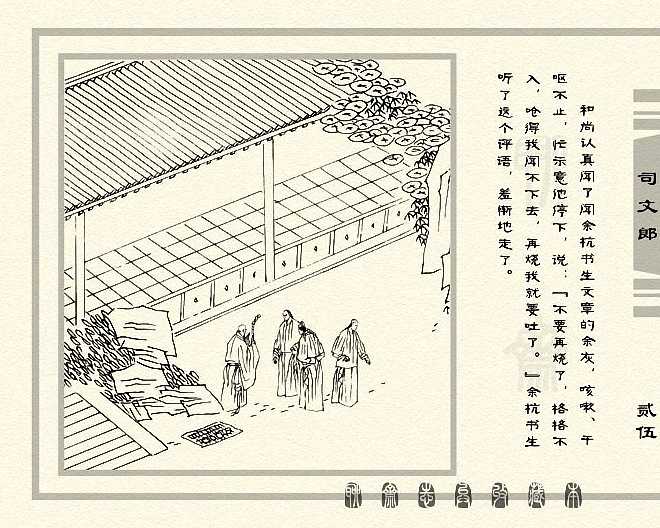 司文郎
贰伍
和尚认真闻了闻余杭书生文章的余灰，咳嗽、干
呕不止，忙示意他停下，说：“不要再烧了，格格不
入，呛得我闻不下去，再烧我就要吐了。”余杭书生
听了这个评语，羞惭地走了。
聊斋志异收藏本